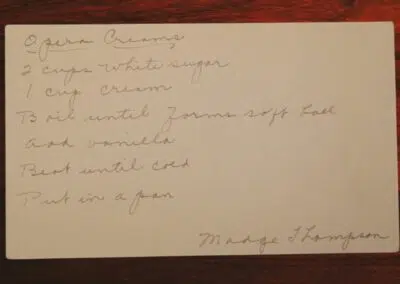 Opera Creams
2 cups white sugar
1 cup cream
Boil until forms soft ball
Add vanilla
Beat until cold
Put in a pan
Madge Thompson